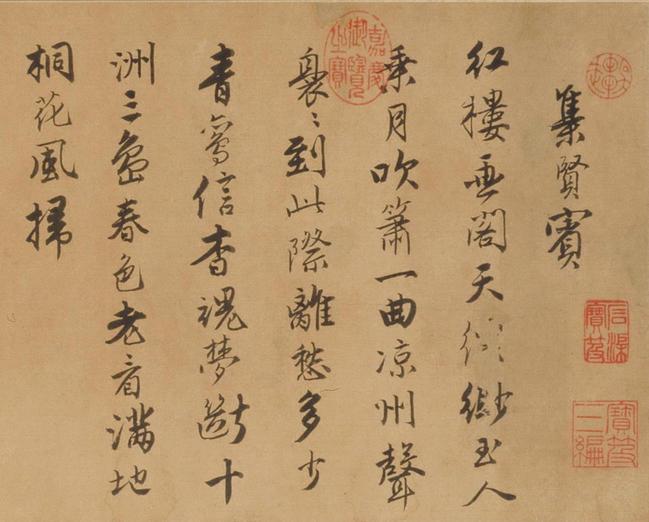 集賢賓
紅樓畫閣天縹緲玉人
乗月吹簫一曲凉州聲
裊〻到此際離愁多少
青鸞信杳魂夢斷十
洲三島春色老看滿地
桐花風掃
嘉慶御覽之寶
石渠寶笈
寶笈三編